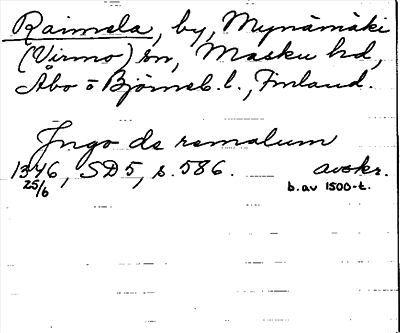 Raimela, by, Mynämäki
(Virmo) sn, Masku hd,
Åbo o Björneb. l., Finland.
Jngo de remalum
1346, SD5, s. 586. avskr.
25/6 b. av 1500-t.